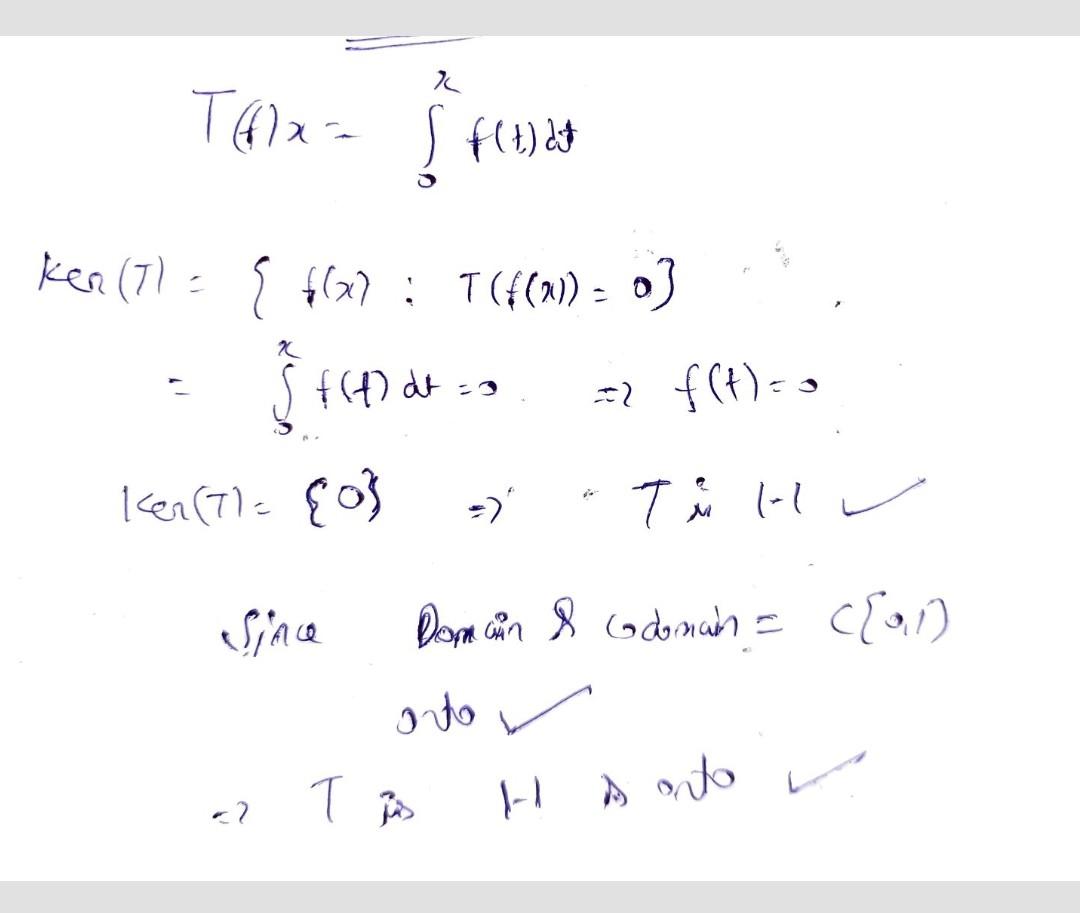 T(f)x = ∫₀ˣ f(t) dt
Ker(T) = { f(x) : T(f(x)) = 0}
= ∫₀ˣ f(t) dt = 0. => f(t) = 0
Ker(T) = {0} => T is 1-1 ✓
Since Domain & Codomain = C[0,1)
onto ✓
=> T is 1-1 & onto ✓